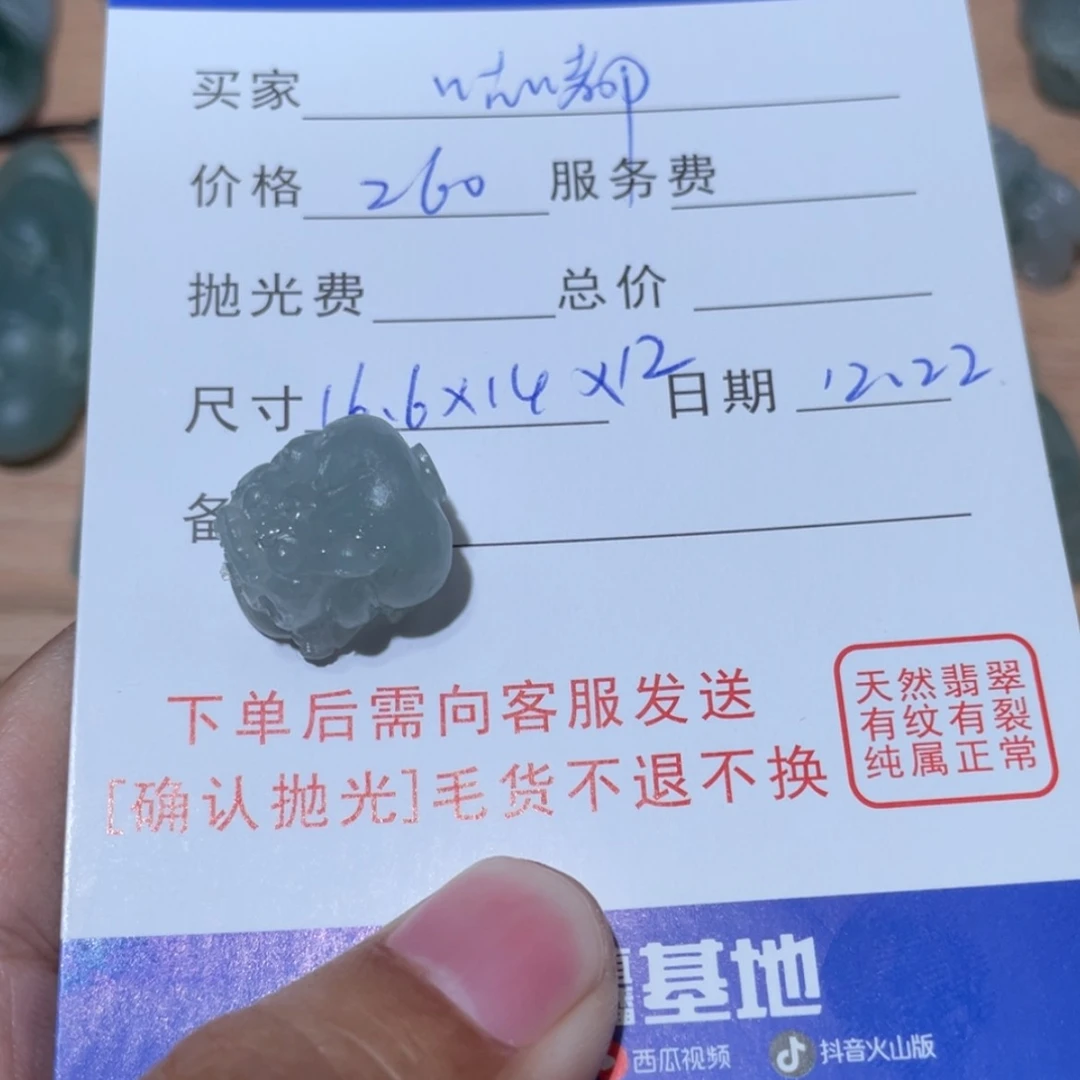 买家
价格 260 服务费
抛光费 总价
尺寸 16.6×14×12 日期 12.22
备
下单后需向客服发送
[确认抛光]毛货不退不换
天然翡翠
有纹有裂
纯属正常
基地
西瓜视频 抖音火山版